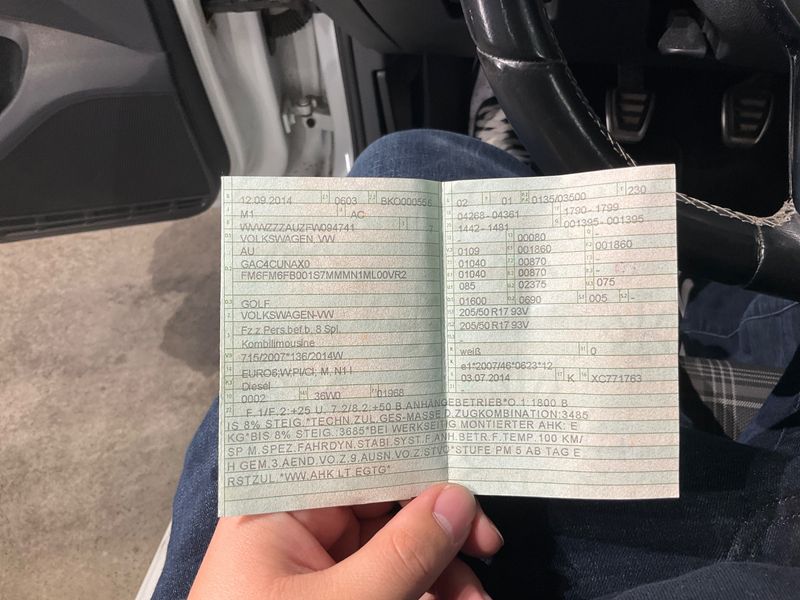 12.09.2014 0603 BKO000556
M1 AC
WVWZZZAUZFW094741 7
VOLKSWAGEN, VW
AU
GAC4CUNAX0
FM6FM6FB001S7MMMN1ML00VR2
GOLF
VOLKSWAGEN-VW
Fz.z.Pers.bef.b. 8 Spl.
Kombilimousine
715/2007*136/2014W
EURO6;W;PI/CI; M, N1 I
Diesel
0002 36W0 01968
02 01 0135/03500 230
04268-04361 1790-1799
1442-1481 001395-001395
00080 -
0109 001860 001860
01040 00870
01040 00870 -
085 02375 075
01600 0690 005 -
205/50 R17 93V
205/50 R17 93V
weiß 0
e1*2007/46*0623*12
03.07.2014 K XC771763
F.1/F.2:+25 U. 7.2/8.2:+50 B.ANHÄNGEBETRIEB*O.1:1800 B
IS 8% STEIG.*TECHN.ZUL.GES-MASSE D.ZUGKOMBINATION:3485
KG*BIS 8% STEIG.:3685*BEI WERKSEITIG MONTIERTER AHK: E
SP M.SPEZ.FAHRDYN.STABI.SYST.F.ANH.BETR.F.TEMP.100 KM/
H GEM.3.AEND.VO.Z.9.AUSN.VO.Z.STVO*STUFE PM 5 AB TAG E
RSTZUL.*WW.AHK LT EGTG*